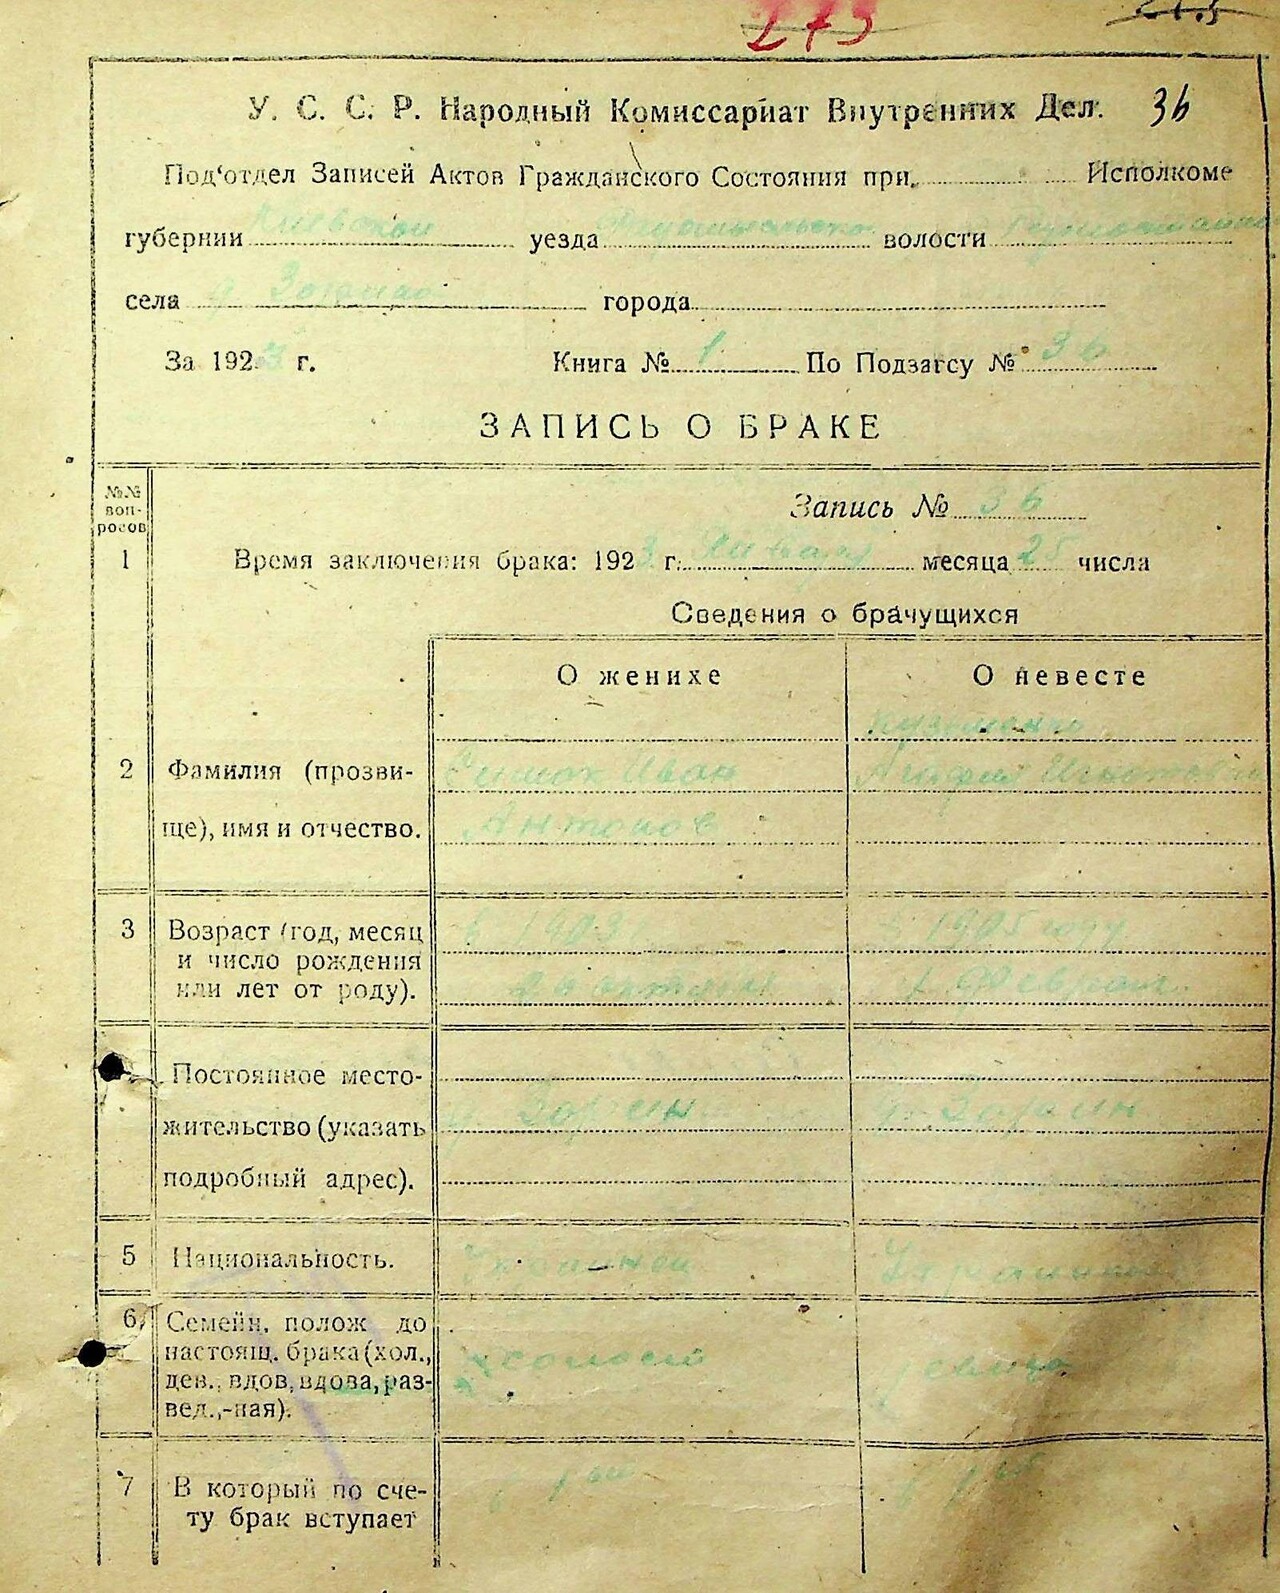 273
У. С. С. Р. Народный Комиссариат Внутренних Дел. 36
Под‘отдел Записей Актов Гражданского Состояния при Исполкоме
губернии Киевской уезда волости
села д. города
За 1923 г. Книга № 1 По Подзагсу № 36
ЗАПИСЬ О БРАКЕ
№№ вопросов
Запись № 36
1 Время заключения брака: 1923 г. Января месяца 25 числа
Сведения о брачущихся
О женихе О невесте
Кузьменко
2 Фамилия (прозви- Иван Агафия Игнатовна
ще), имя и отчество. Антонов
3 Возраст (год, месяц в 1903 в 1905 году
и число рождения
или лет от роду). октября 1 февраля
Постоянное место-
жительство (указать д. Зорин д. Зорин
подробный адрес).
5 Национальность. Украинец Украинка
6 Семейн. полож до
настоящ. брака (хол., холост
дев., вдов, вдова, раз-
вед.,-ная).
7 В который по сче- в 1ый в 1ый
ту брак вступает